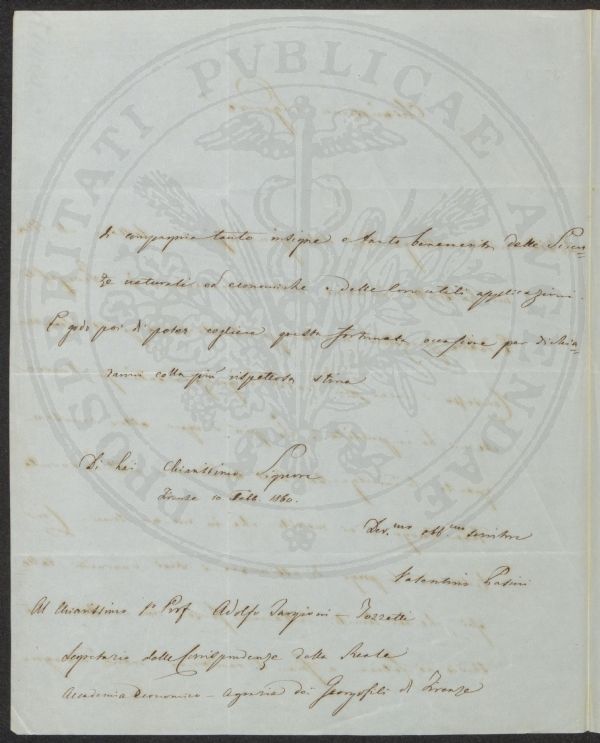 PROSPERITATI PUBLICAE AUGENDAE
di compagnia tanto insigne e tanto benemerita delle Scien-
ze naturali ed economiche e delle loro utili applicazioni.
E godo poi di poter cogliere questa fortunata occasione per dichia-
rarmi colla più rispettosa stima
Di Lei Chiarissimo Signore
Firenze 10 Febb. 1860.
Dev.mo obb.mo servitore
Valentino Pasini
Al Chiarissimo Sr Prof. Adolfo Targioni-Tozzetti
Segretario delle Corrispondenze della Reale
Accademia Economico-agraria dei Georgofili di Firenze